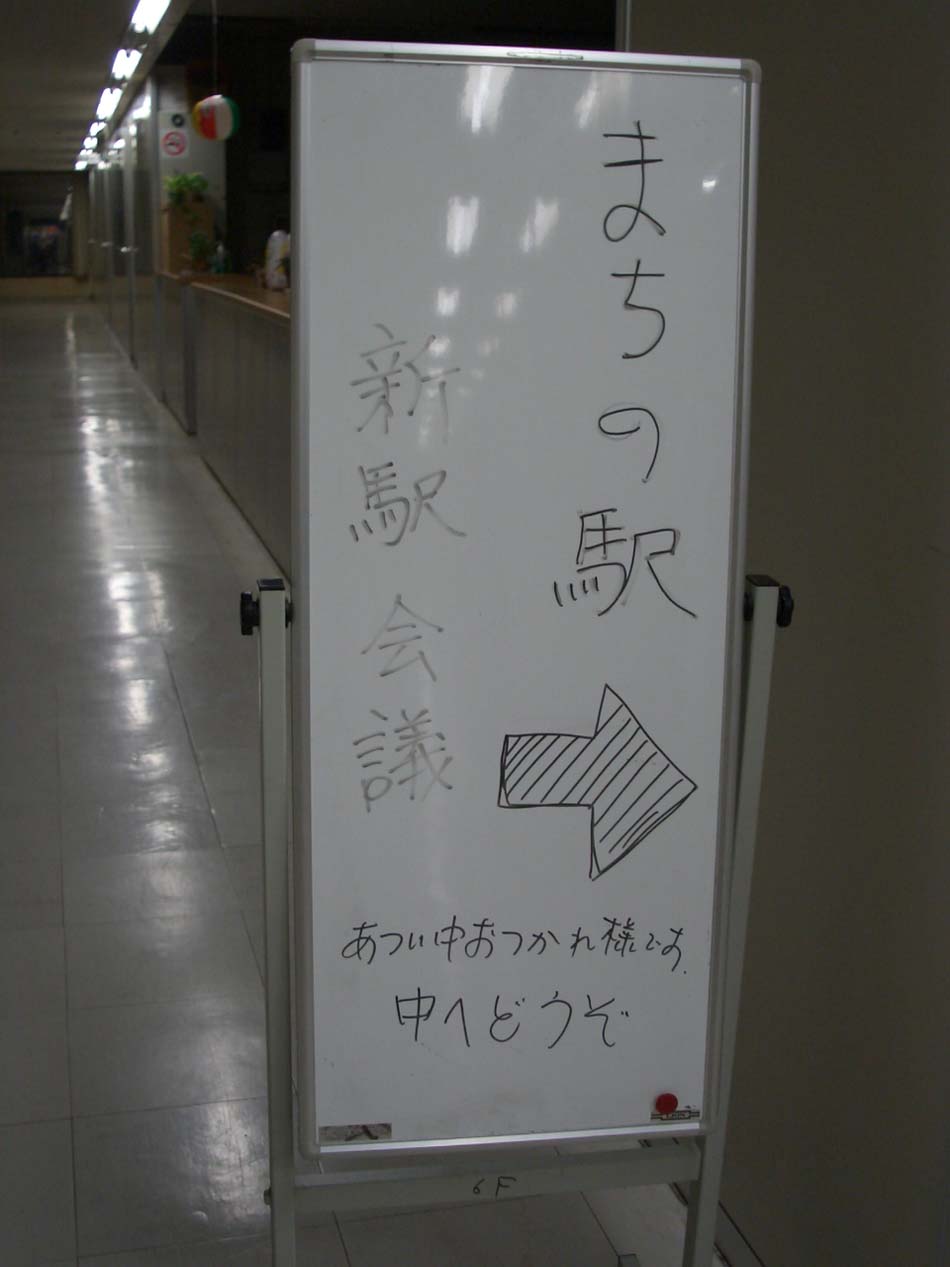 まちの駅
新駅会議
あつい中おつかれ様です.
中へどうぞ
6F